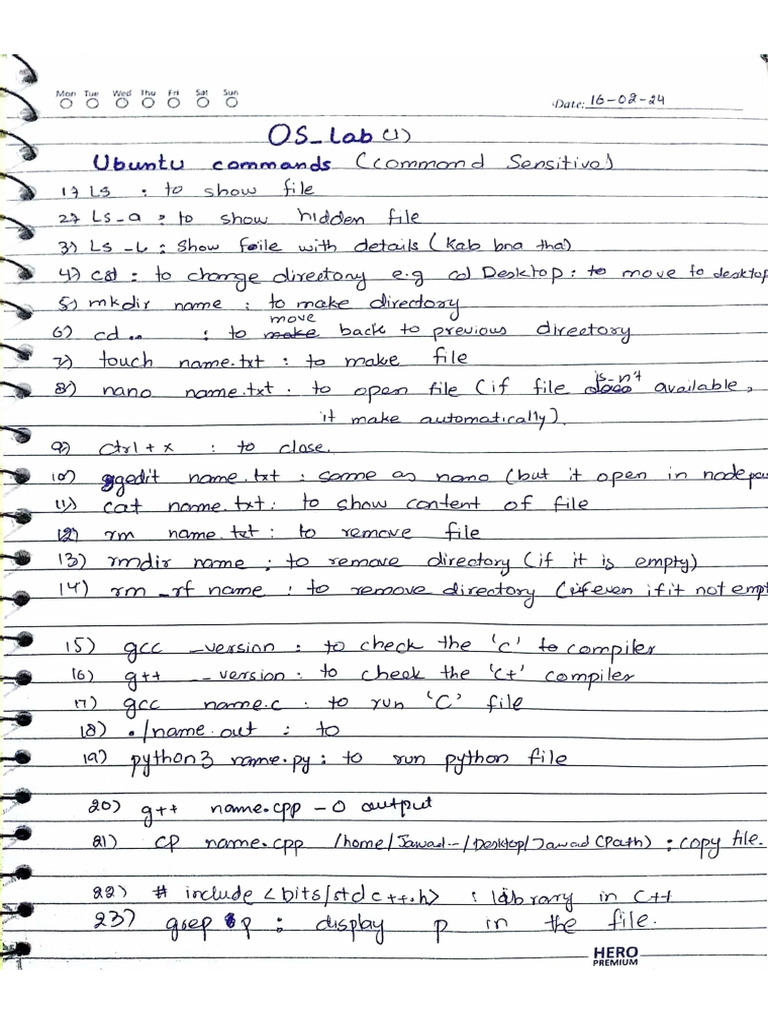 Mon Tue Wed Thu Fri Sat Sun
Date: 16-02-24
OS_Lab (1)
Ubuntu commands (Command Sensitive)
1) Ls : to show file
2) Ls_a : to show hidden file
3) Ls -L : Show file with details (kab bna tha)
4) cd : to change directory e.g cd Desktop : to move to desktop
5) mkdir name : to make directory
6) cd.. : to move back to previous directory
7) touch name.txt : to make file
8) nano name.txt : to open file (if file is-n't available,
it make automatically).
9) ctrl + x : to close.
10) gedit name.txt : same as nano (but it open in
11) cat name.txt : to show content of file
12) rm name.txt : to remove file
13) rmdir name : to remove directory (if it is empty)
14) rm _rf name : to remove directory (even if it not empt
15) gcc _version : to check the 'c' compiler
16) g++ _version : to check the 'c+' compiler
17) gcc name.c : to run 'C' file
18) ./name.out : to
19) python3 name.py : to run python file
20) g++ name.cpp -o output
21) cp name.cpp /home/Jawad--/Desktop/Jawad (Path) : copy file.
22) # include <bits/stdc++.h> : library in C++
23) grep p : display p in the file.
HERO
PREMIUM